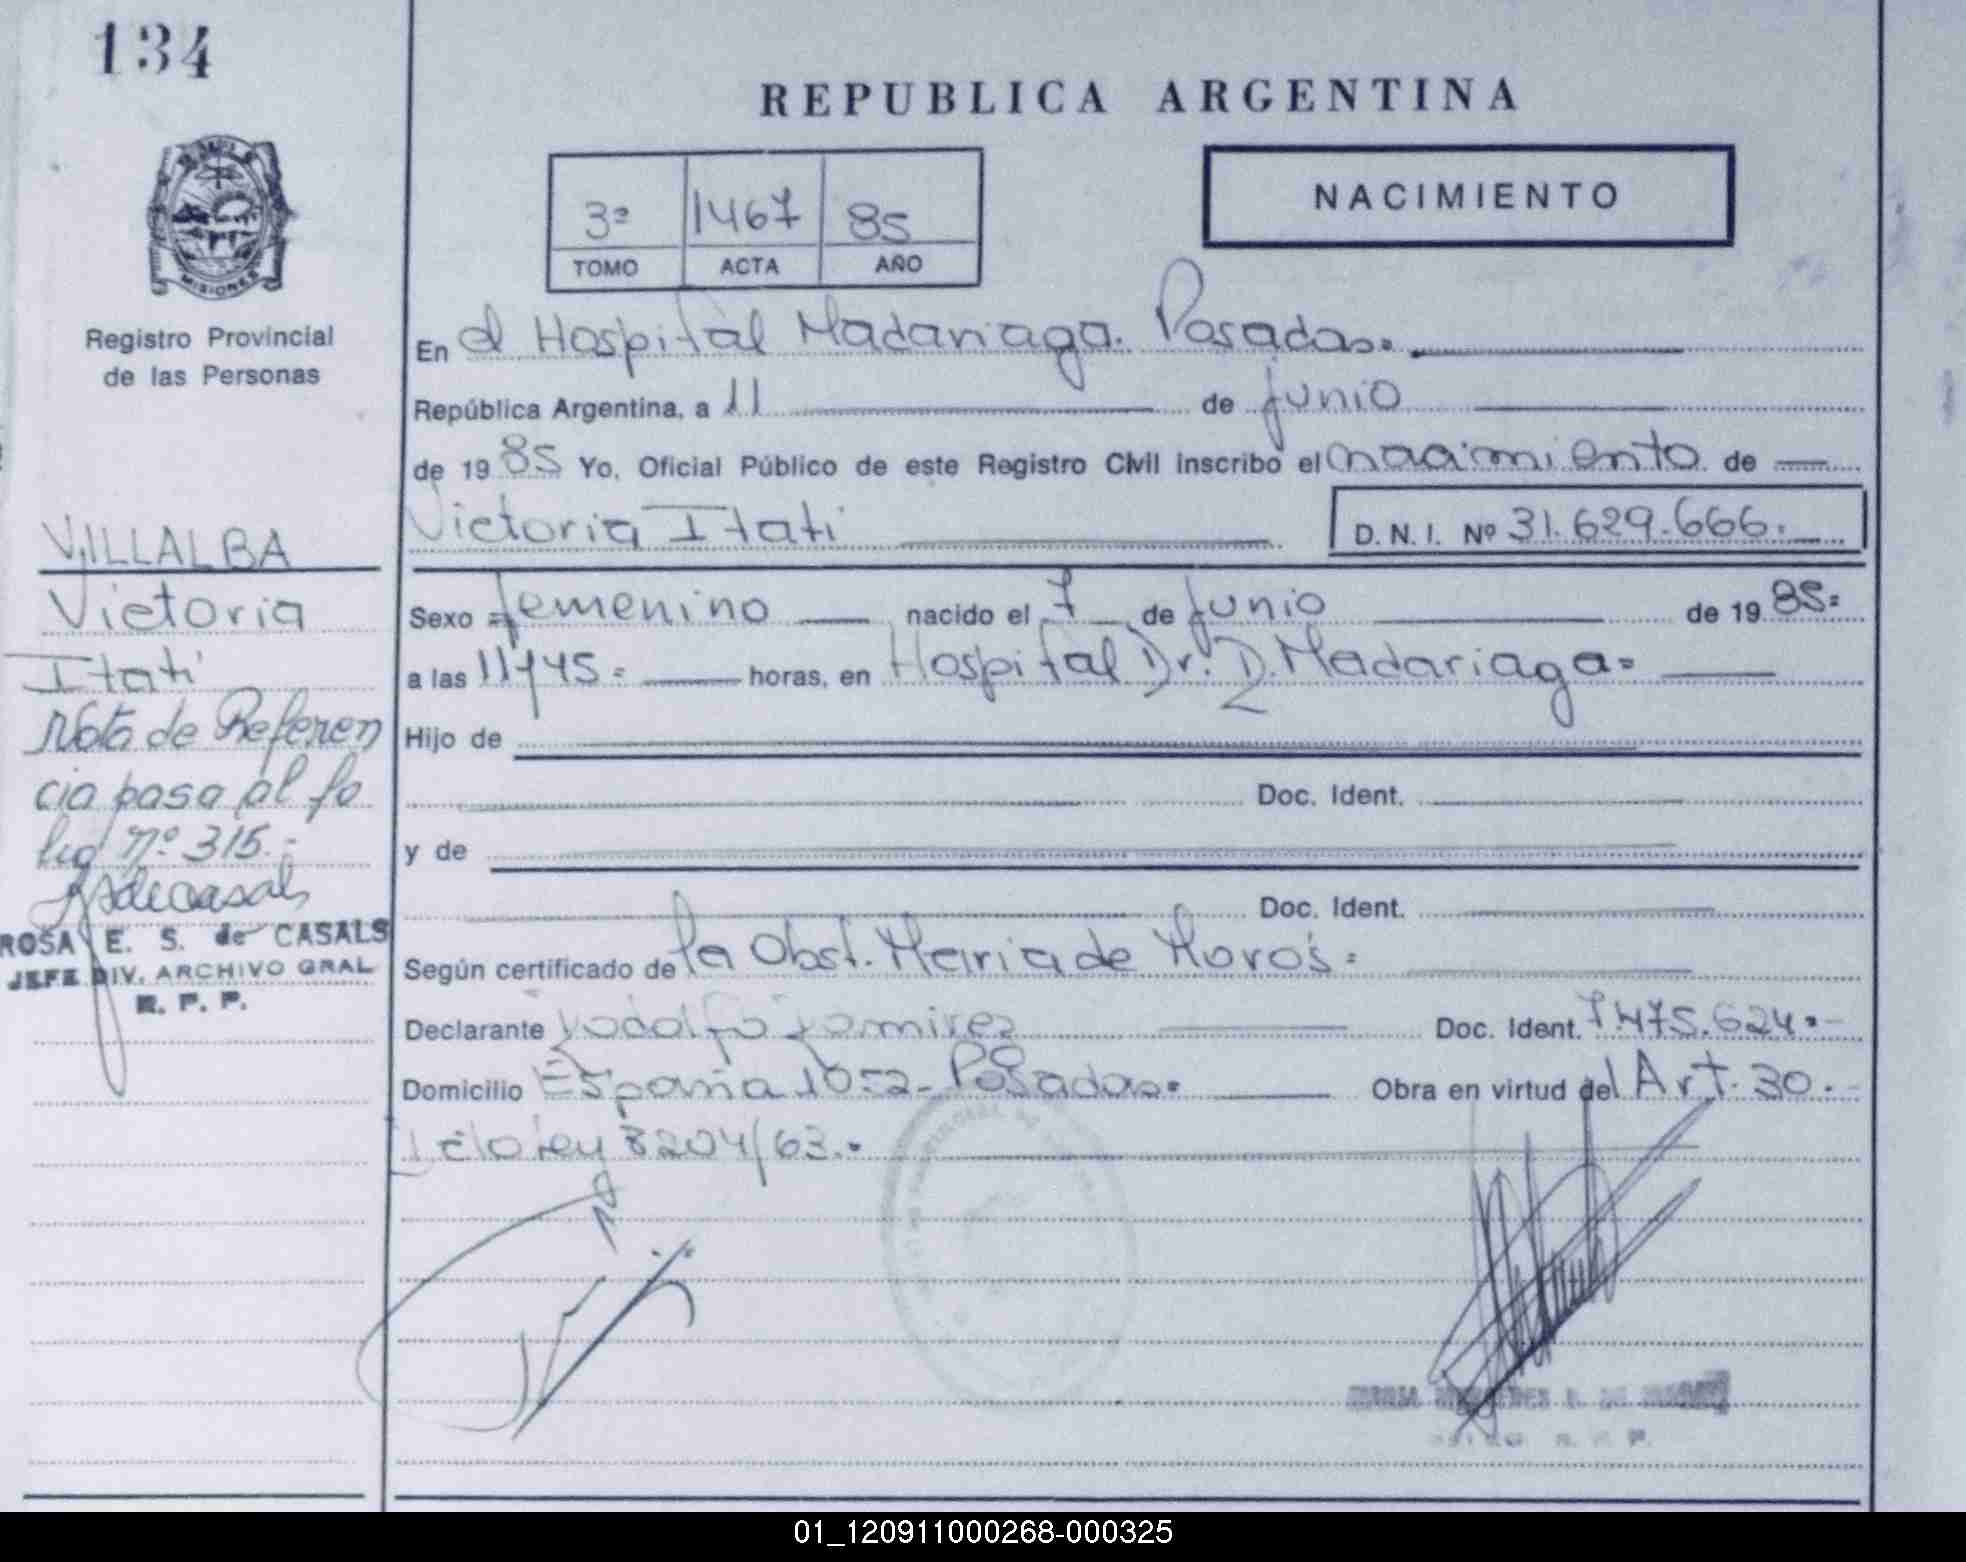 134
REPUBLICA ARGENTINA
NACIMIENTO
3º 1467 85
TOMO ACTA AÑO
MISIONES
Registro Provincial
de las Personas
En el Hospital Madariaga. Posadas.
República Argentina, a 11 de junio
de 1985 Yo, Oficial Público de este Registro Civil inscribo el nacimiento de
Victoria Itati
D. N. I. Nº 31.629.666.
VILLALBA
Victoria
Itati
Nota de Referen
cia pasa al fo
lio Nº 315.-
ROSA E. S. de CASALS
JEFE DIV. ARCHIVO GRAL
R. P. P.
Sexo femenino nacido el 7 de junio de 1985=
a las 11y45= horas, en Hospital Dr. D. Madariaga=
Hijo de
Doc. Ident.
y de
Doc. Ident.
Según certificado de la Obst. Maria de
Declarante Rodolfo Ramirez Doc. Ident. 7.475.624.-
Domicilio España 1052- Posadas. Obra en virtud del Art. 30.-
ley 8204/63.-
R. P. P.
01_120911000268-000325